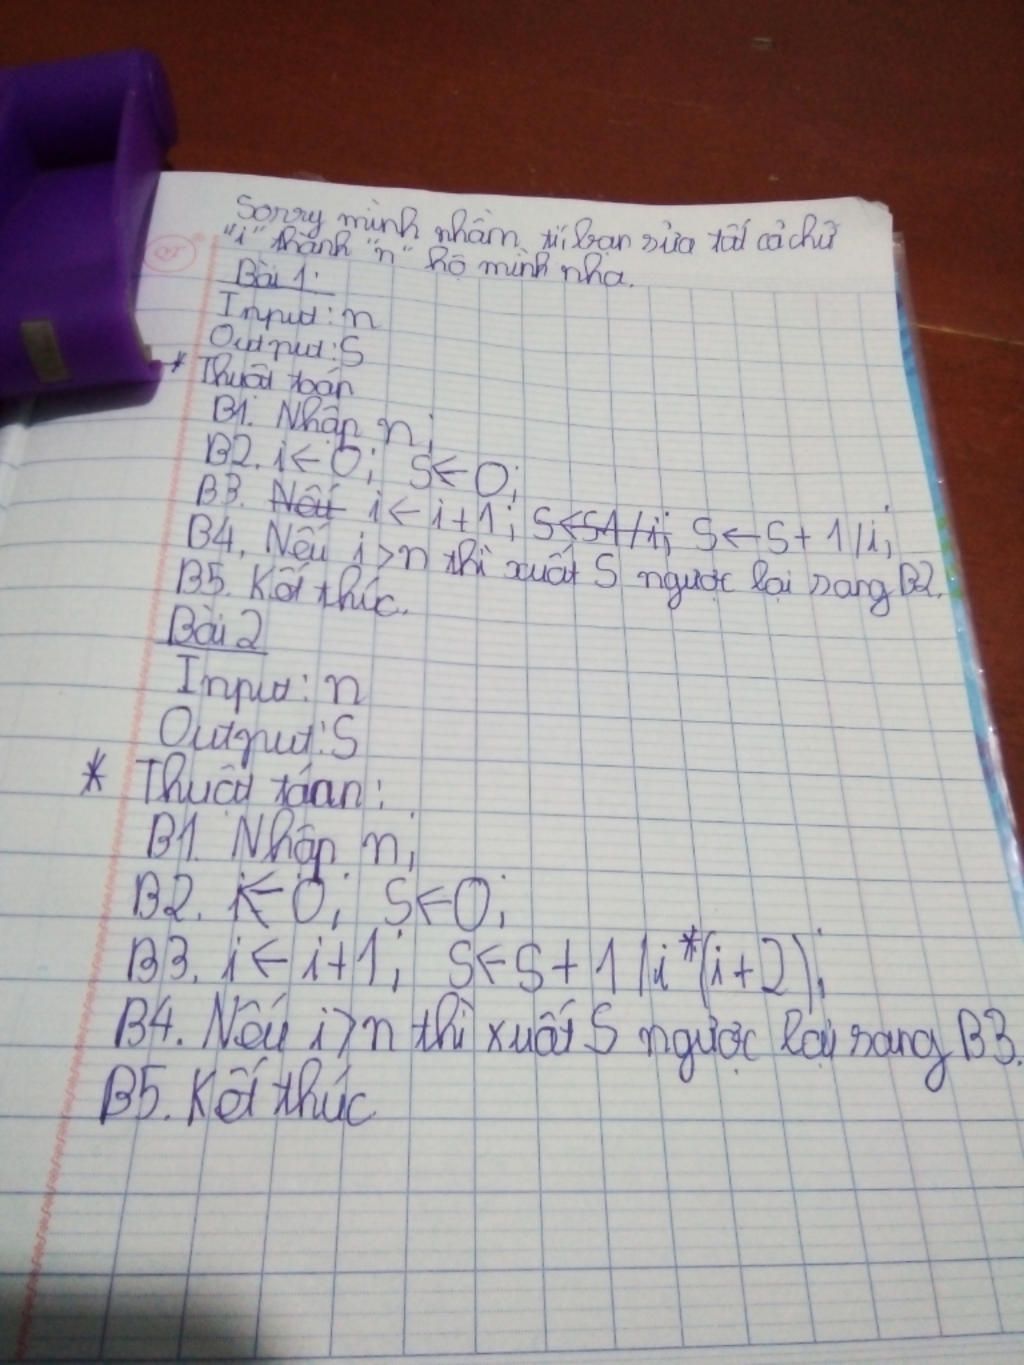 Sorry mình nhầm tí bạn sửa tất cả chữ
"i" thành "n" hộ mình nha.
Bài 1:
Input: n
Output: S
* Thuật toán
B1. Nhập n;
B2. i ← 0; S ← 0;
B3. Nếu i ← i+1; S←S1/i; S ← S + 1/i;
B4. Nếu i>n thì xuất S ngược lại sang B2.
B5. Kết thúc.
Bài 2
Input: n
Output: S
* Thuật tóan:
B1. Nhập n;
B2. i ← 0; S ← 0;
B3. i ← i+1; S ← S + 1/i*(i+2);
B4. Nếu i>n thì xuất S ngược lại sang B3.
B5. Kết thúc